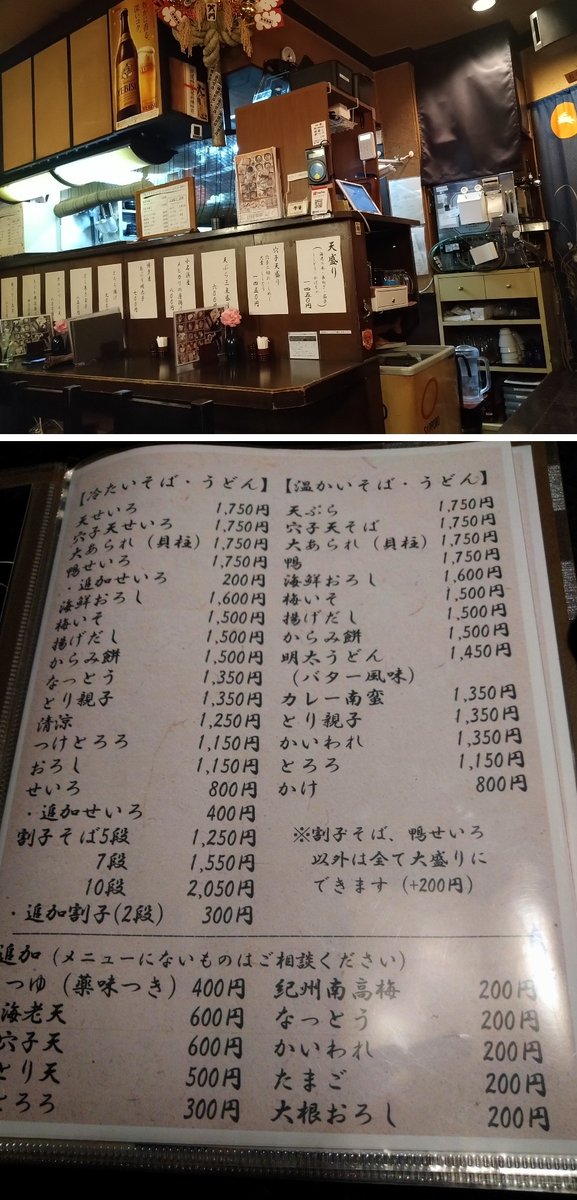 YEBISU
天盛り
一四五〇円
穴子天盛り
一四五〇円
天ぷら三点盛
【冷たいそば・うどん】
天せいろ 1,750円
穴子天せいろ 1,750円
大あられ（貝柱） 1,750円
鴨せいろ 1,750円
・追加せいろ 200円
海鮮おろし 1,600円
梅いそ 1,500円
揚げだし 1,500円
からみ餅 1,500円
なっとう 1,350円
とり親子 1,350円
清涼 1,250円
つけとろろ 1,150円
おろし 1,150円
せいろ 800円
・追加せいろ 400円
割子そば5段 1,250円
7段 1,550円
10段 2,050円
・追加割子(2段) 300円
【温かいそば・うどん】
天ぷら 1,750円
穴子天そば 1,750円
大あられ（貝柱） 1,750円
鴨 1,750円
海鮮おろし 1,600円
梅いそ 1,500円
揚げだし 1,500円
からみ餅 1,500円
明太うどん 1,450円
（バター風味）
カレー南蛮 1,350円
とり親子 1,350円
かいわれ 1,350円
とろろ 1,150円
かけ 800円
※割子そば、鴨せいろ
以外は全て大盛りに
できます（+200円）
追加（メニューにないものはご相談ください）
つゆ（薬味つき） 400円
海老天 600円
穴子天 600円
とり天 500円
とろろ 300円
紀州南高梅 200円
なっとう 200円
かいわれ 200円
たまご 200円
大根おろし 200円